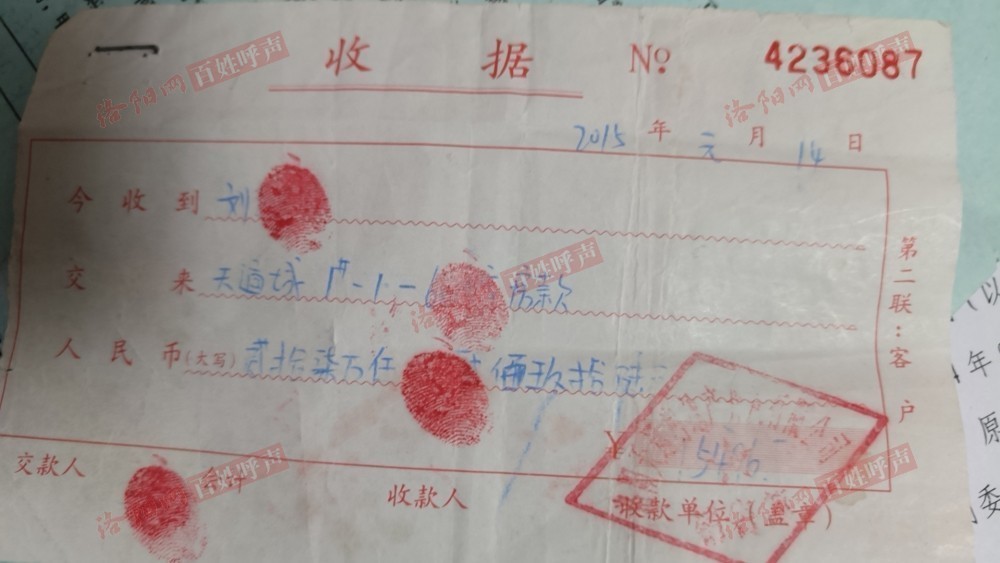 收据 № 4236087
2015 年 元 月 14 日
今收到 刘
交来 天道城 1#-1-6 房款
人民币(大写) 贰拾柒万伍 佰玖拾陆
¥
交款人
收款人
收款单位(盖章)
第二联:客户
洛阳网 百姓呼声
洛阳网 百姓呼声
洛阳网 百姓呼声
洛阳网 百姓呼声
洛阳网 百姓呼声
(以
年
原
委